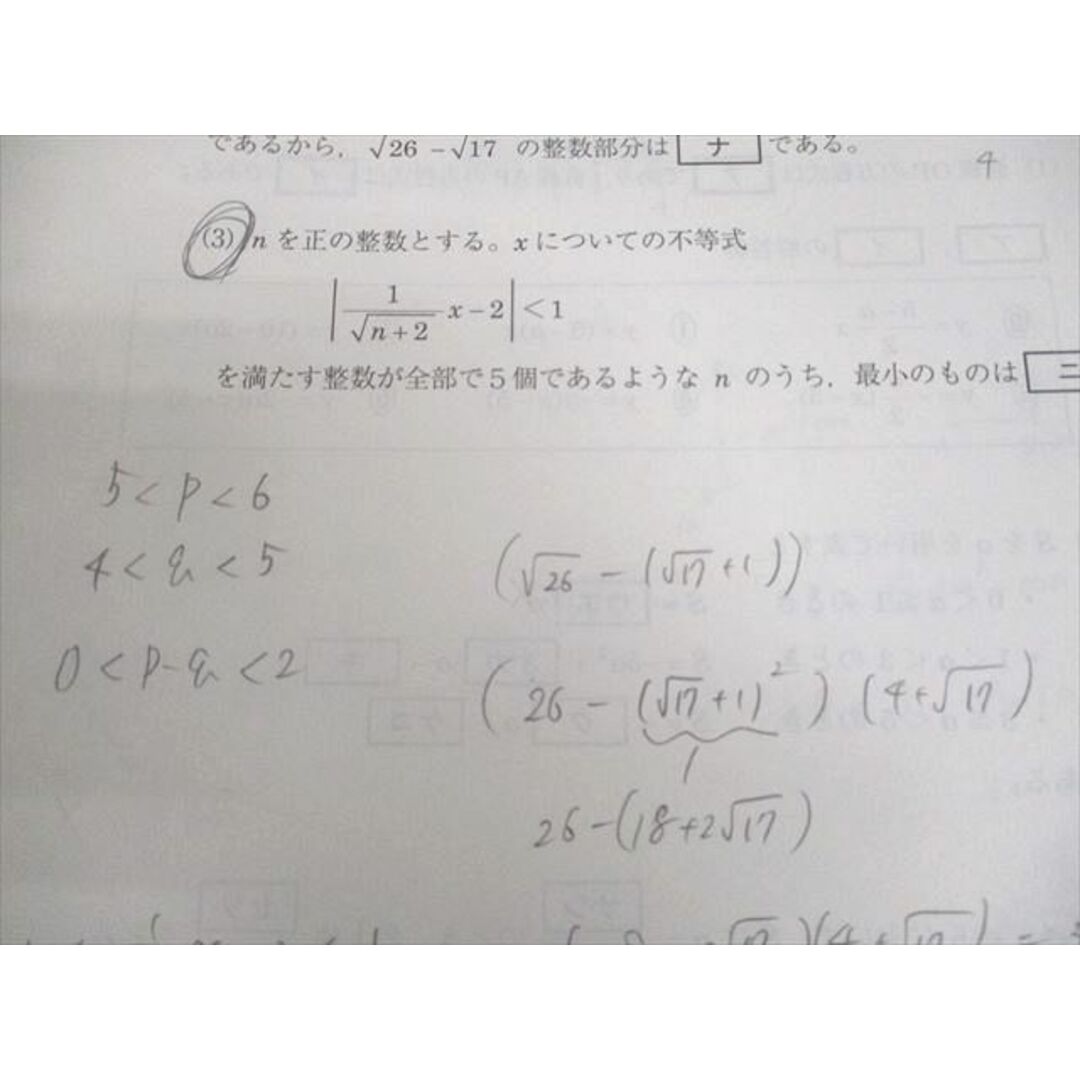 であるから, √26 − √17 の整数部分は ナ である。
4
(3) n を正の整数とする。x についての不等式
|1/√(n+2) x − 2| < 1
を満たす整数が全部で5個であるような n のうち, 最小のものは ニ
5 < p < 6
4 < q < 5
(√26 − (√17 + 1))
0 < p - q < 2
(26 − (√17 + 1)²) (4 + √17)
1
26 − (18 + 2√17)
√17)(4 + √17) =